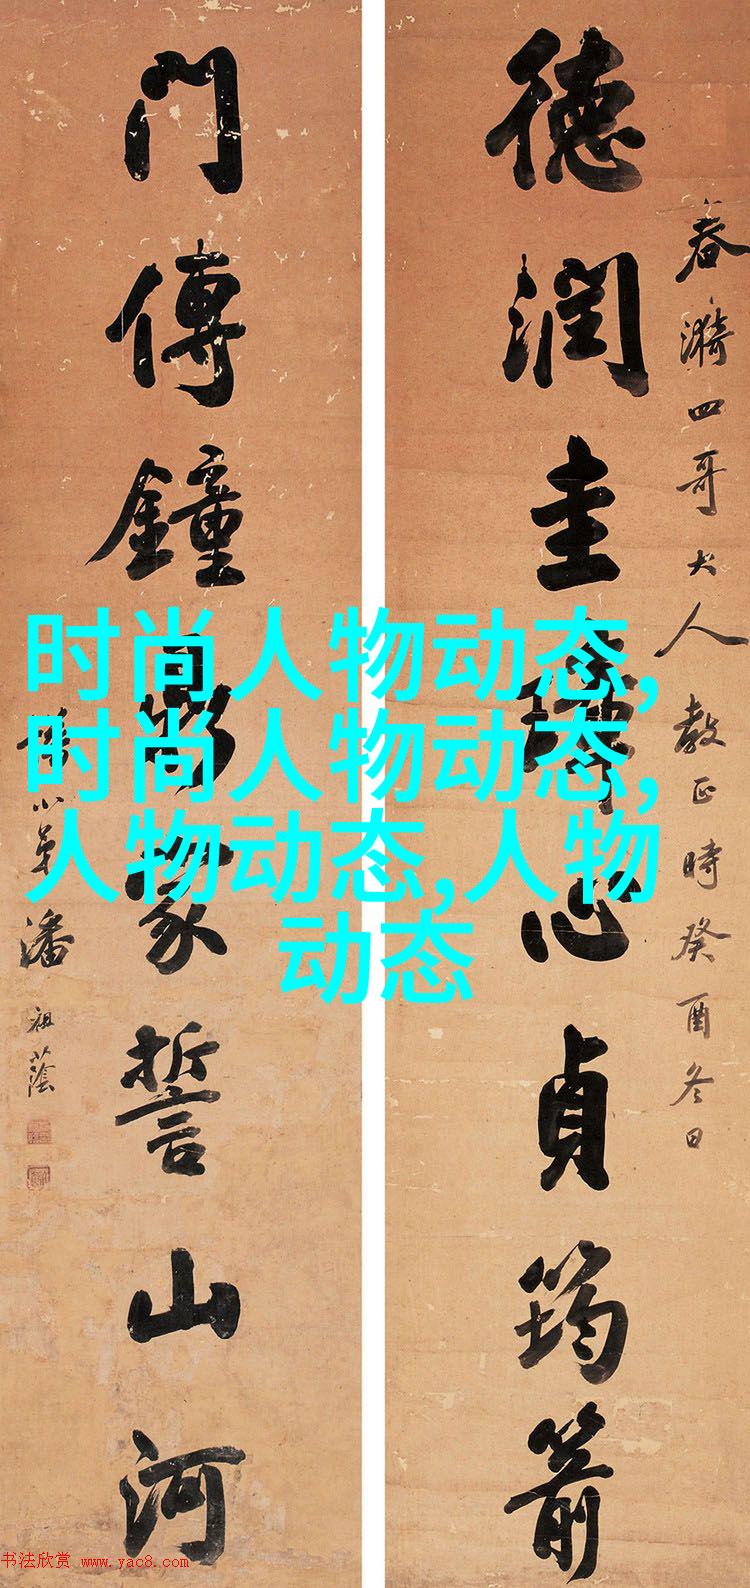 德潤圭璋心貞筠箭
春漪四哥大人教正時癸酉冬日
門傳鐘鼎家誓山河
弟潘祖蔭
时尚人物动态,
时尚人物动态,
人物动态,人物
动态
书法欣赏 www.yac8.com